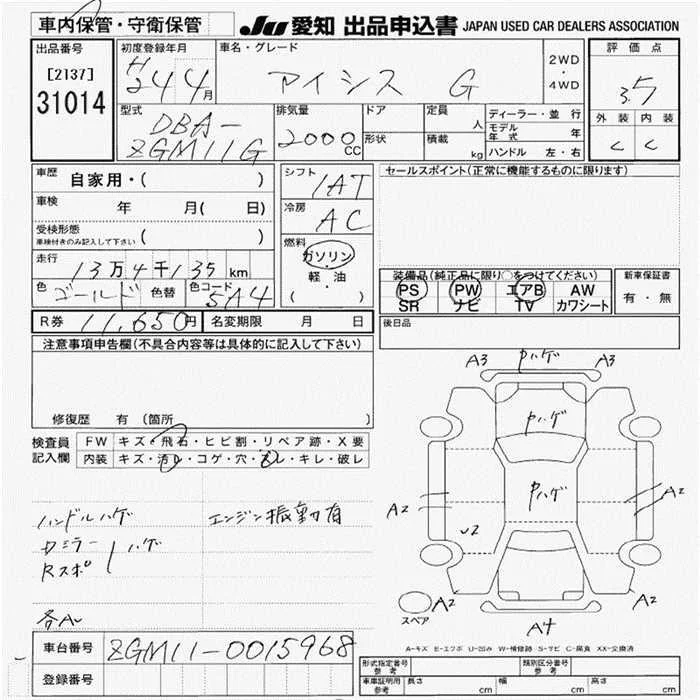 車内保管・守衛保管
JU 愛知 出品申込書 JAPAN USED CAR DEALERS ASSOCIATION
出品番号
[2137]
31014
初度登録年月
H
24 4月
車名・グレード
アイシス G
2WD
・
4WD
評価点
3.5
外装 内装
C C
型式
DBA-
ZGM11G
排気量
2000CC
ドア
形状
定員
人
積載
kg
ディーラー・並行
モデル年式 年
ハンドル 左・右
車歴 自家用・( )
車検 年 月( 日)
受検形態
車検付きのみ記入して下さい ( )
走行
13万4千135km
色 ゴールド 色替 色コード 5A4
シフト
IAT
冷房
AC
燃料
ガソリン
軽・油
( )
セールスポイント(正常に機能するものに限ります)
装備品(純正品に限り○をつけてください)
PS PW エアB AW
SR ナビ TV カワシート
新車保証書
有・無
R券 11,650円 名変期限 月 日
後日品
注意事項申告欄(不具合内容等は具体的に記入して下さい)
修復歴 有 (箇所 )
検査員
記入欄
FW キズ・飛石・ヒビ割・リペア跡・X要
内装 キズ・汚レ・コゲ・穴・スレ・キレ・破レ
ハンドルハゲ エンジン振動有
Dミラー
Rスポ ハゲ
各A
A3 Pハゲ A3
Pハゲ
Pハゲ
A2 A2
A2 A2
A4
スペア
A-キズ E-エクボ U-凹み W-補修跡 S-サビ C-腐食 XX-交換済
車台番号 ZGM11-0015968
登録番号
形式指定番号
参考
類別区分番号
参考
車庫証明用
参考
長さ cm 幅 cm 高さ cm